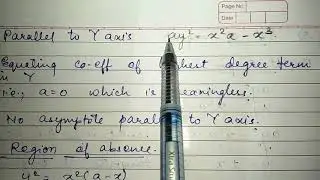 Page No.
Date
Parallel to Y axis ay² = x²a - x³
Equating co-eff of highest degree term
in Y
i.e., a=0 which is meaningless.
No asymptote parallel to Y axis.
Region of absence.
y² = x²(a-x)